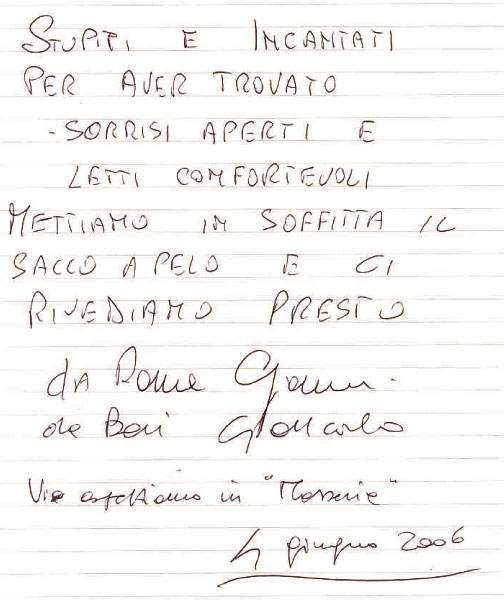 STUPITI E INCANTATI
PER AVER TROVATO
- SORRISI APERTI E
LETTI COMFORTEVOLI
METTIAMO IN SOFFITTA IL
SACCO A PELO E CI
RIVEDIAMO PRESTO
da Roma Gianni.
da Bari Giancarlo
Vi aspettiamo in "Masseria"
4 giugno 2006